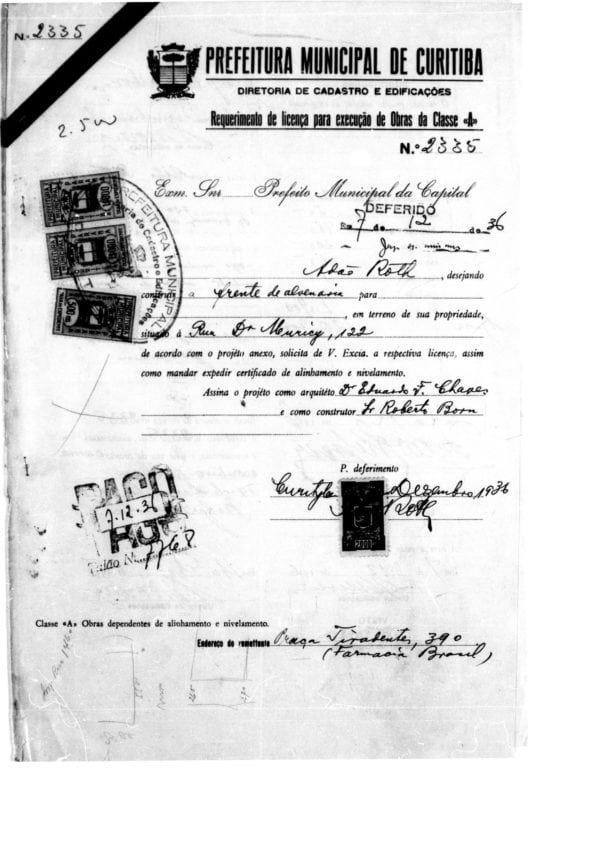 N. 2335
PREFEITURA MUNICIPAL DE CURITIBA
DIRETORIA DE CADASTRO E EDIFICAÇÕES
Requerimento de licença para execução de Obras da Classe «A»
2.5
N.º 2335
Exm. Snr Prefeito Municipal da Capital
DEFERIDO
7 de 12 de 36
Adão Roth, desejando
construir a frente de alvenaria para
, em terreno de sua propriedade,
situação à Rua Dr Muricy, 122
de acordo com o projéto anexo, solicita de V. Excia. a respectiva licença, assim
como mandar expedir certificado de alinhamento e nivelamento.
Assina o projéto como arquitéto Dr Eduardo F. Chaves
e como construtor Sr Roberto Born
P. deferimento
Curityba Dezembro 1936
Roth
2000
PREFEITURA MUNICIPAL
Diretoria de Cadastro e Edificações
PAGO
7.12.36
Talão N. 7768
Classe «A» Obras dependentes de alinhamento e nivelamento.
Endereço do remettente Praça Tiradentes, 390
(Farmacia Brasil)